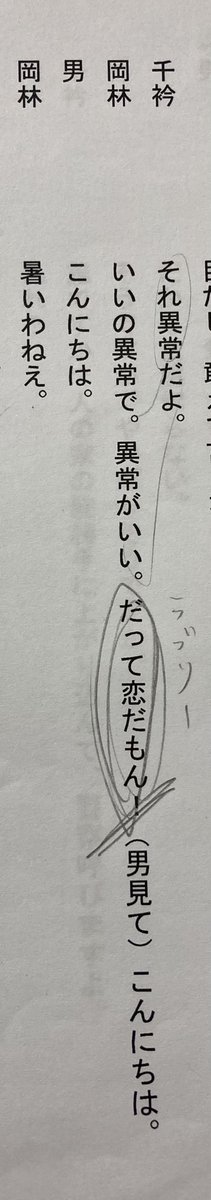 千衿 それ異常だよ。
岡林 いいの異常で。異常がいい。だって恋だもん!(男見て)こんにちは。
ラブリー
男 こんにちは。
岡林 暑いわねえ。